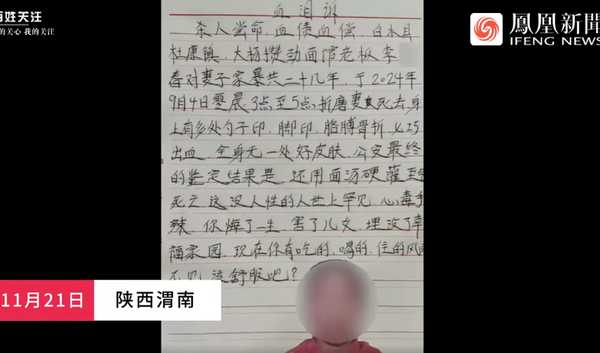 百姓关注
的关心 我的关注
鳳凰新聞
IFENG NEWS
血泪诉
杀人当命,血债血偿,白水县
杜康镇,大杨攒动面馆老板李
春对妻子家暴共二十年,于2024年
9月4日零晨3点至5点,折磨妻死去,身
上有多处勺子印,脚印,胳膊骨折,七巧
出血,全身无一处好皮肤,公安最终
的鉴定结果是,还用面汤硬灌至
死亡,这没人性的人世上罕见,心毒手
辣,你悔了一生,害了儿女,埋没了幸
福家园,现在你有吃的,喝的,住的风
不见,该舒服吧?
11月21日
陕西渭南